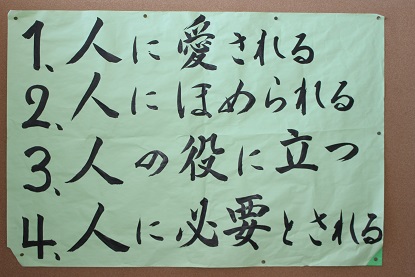 1、人に愛される
2、人にほめられる
3、人の役に立つ
4、人に必要とされる